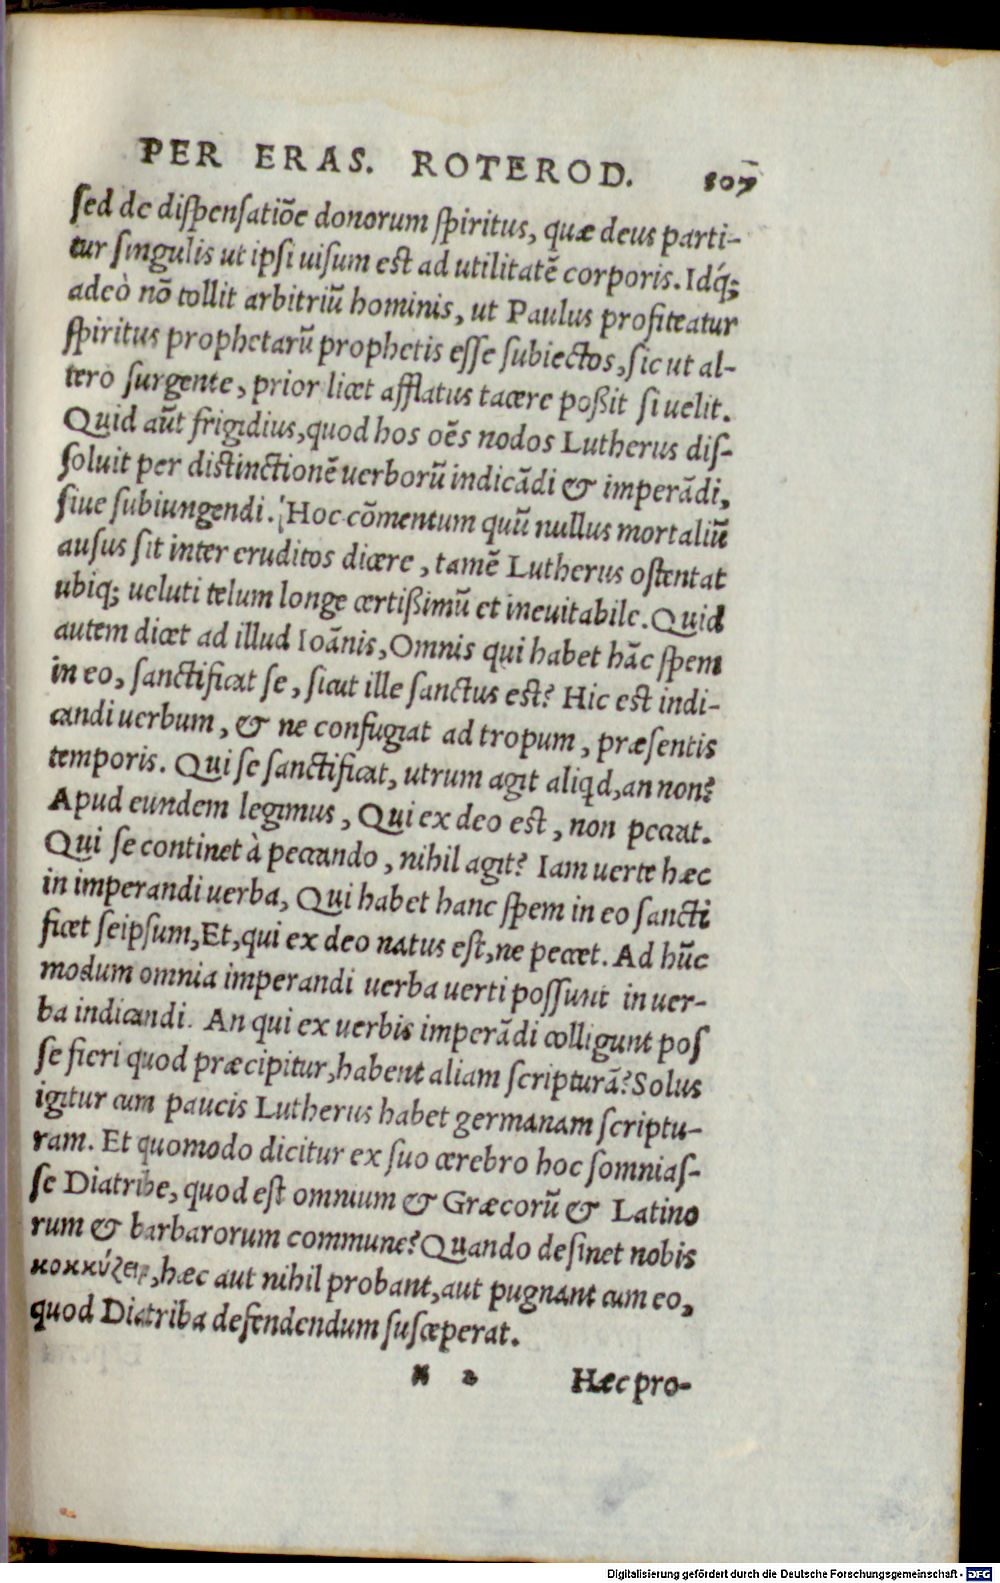 PER ERAS. ROTEROD. 107
sed de dispensatiõe donorum spiritus, quæ deus parti-
tur singulis ut ipsi uisum est ad utilitatẽ corporis. Idq́;
adeò nõ tollit arbitriũ hominis, ut Paulus profiteatur
spiritus prophetarũ prophetis esse subiectos, sic ut al-
tero surgente, prior licet afflatus tacere poßit si uelit.
Quid aũt frigidius, quod hos oẽs nodos Lutherus dis-
soluit per distinctionẽ uerborũ indicãdi & imperãdi,
siue subiungendi. Hoc cõmentum quũ nullus mortaliũ
ausus sit inter eruditos dicere, tamẽ Lutherus ostentat
ubiq; ueluti telum longe certißimũ et ineuitabile. Quid
autem dicet ad illud Ioãnis, Omnis qui habet hãc spem
in eo, sanctificat se, sicut ille sanctus est? Hic est indi-
candi uerbum, & ne confugiat ad tropum, præsentis
temporis. Qui se sanctificat, utrum agit aliqd, an non?
Apud eundem legimus, Qui ex deo est, non peccat.
Qui se continet à peccando, nihil agit? Iam uerte hæc
in imperandi uerba, Qui habet hanc spem in eo sancti
ficet seipsum, Et, qui ex deo natus est, ne peccet. Ad hũc
modum omnia imperandi uerba uerti possunt in uer-
ba indicandi. An qui ex uerbis imperãdi colligunt pos
se fieri quod præcipitur, habent aliam scripturã? Solus
igitur cum paucis Lutherus habet germanam scriptu-
ram. Et quomodo dicitur ex suo cerebro hoc somnias-
se Diatribe, quod est omnium & Græcorũ & Latino
rum & barbarorum commune? Quando desinet nobis
κοκκύζειν, hæc aut nihil probant, aut pugnant cum eo,
quod Diatriba defendendum susceperat.
N 2 Hæc pro-
Digitalisierung gefördert durch die Deutsche Forschungsgemeinschaft - DFG